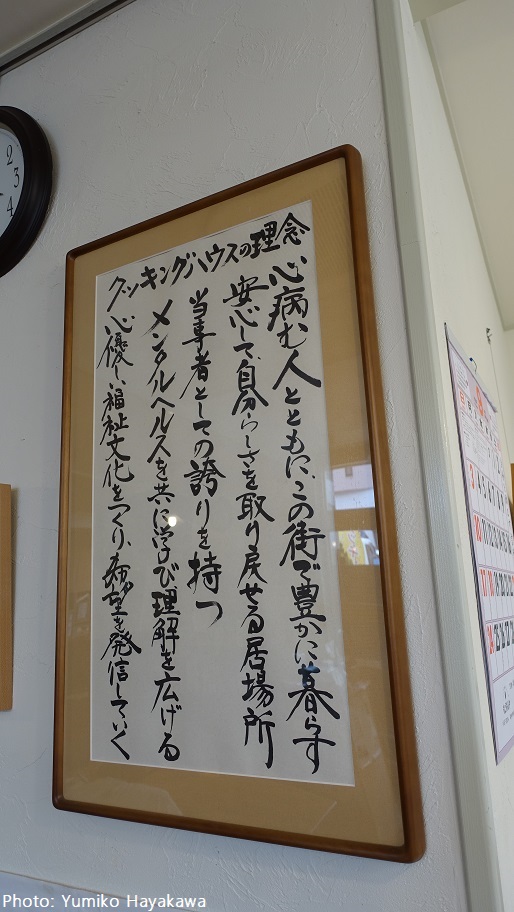 クッキングハウスの理念
心病む人とともに、この街で豊かに暮らす
安心して、自分らしさを取り戻せる居場所
当事者としての誇りを持つ
メンタルヘルスを共に学び理解を広げる
心優しい福祉文化をつくり、希望を発信していく
2
3
4
Photo: Yumiko Hayakawa